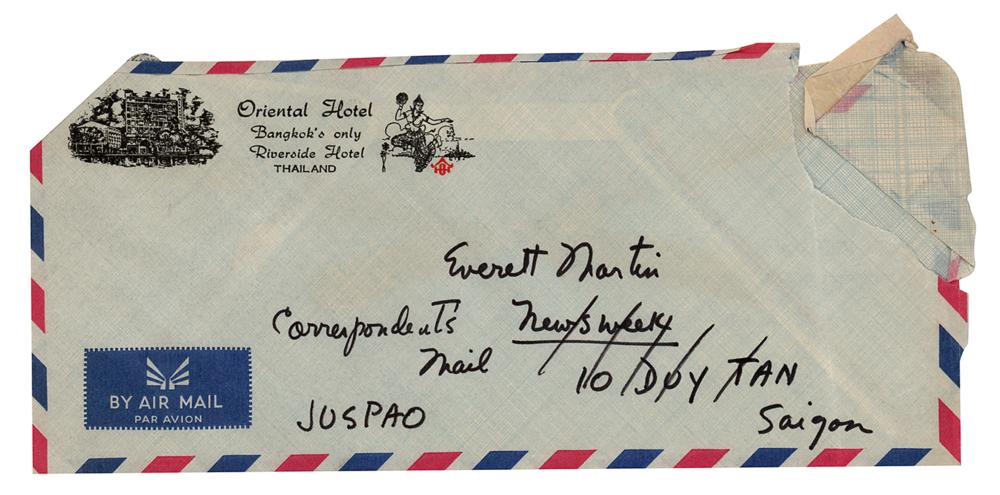 Oriental Hotel
Bangkok's only
Riverside Hotel
THAILAND
Everett Martin
Correspondents
Mail
JUSPAO
Newsweek
10 DUY TAN
Saigon
BY AIR MAIL
PAR AVION